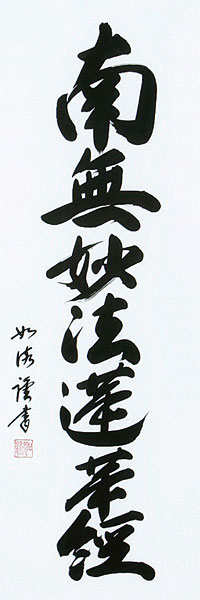 南無妙法蓮華經
謹書